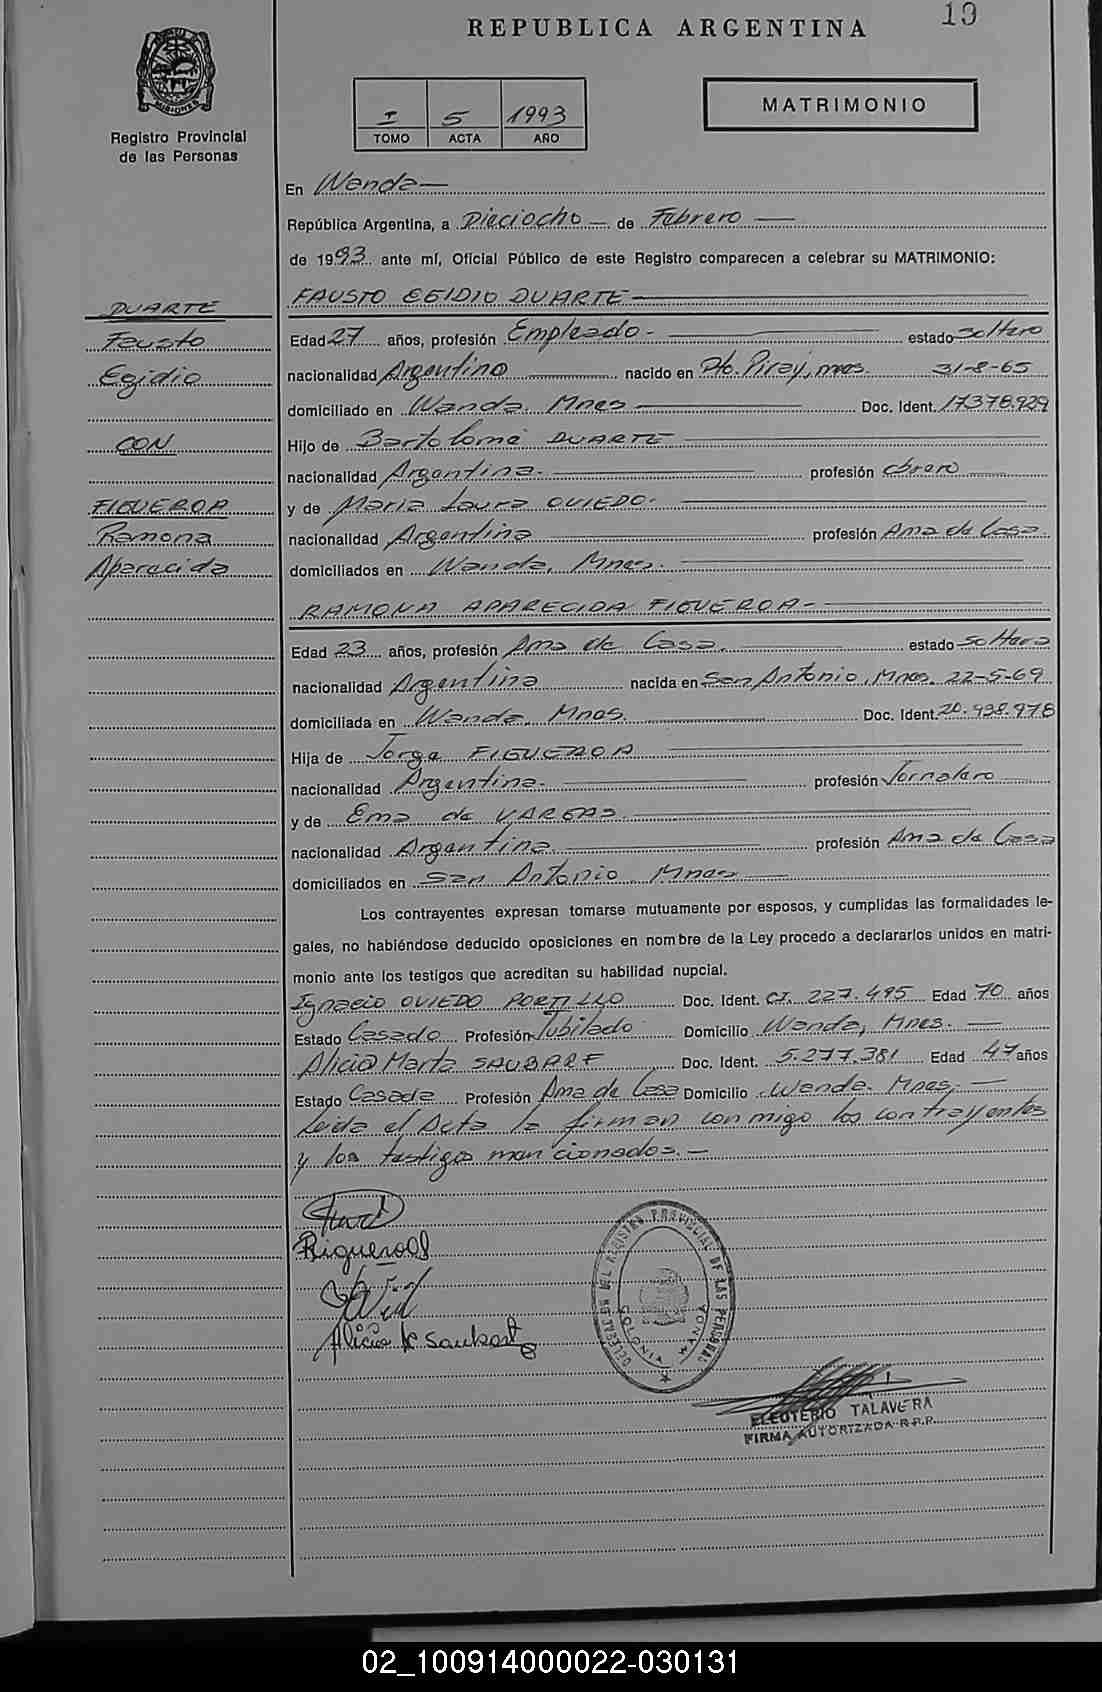 REPUBLICA ARGENTINA
19
MISIONES
Registro Provincial
de las Personas
I 5 1993
TOMO ACTA AÑO
MATRIMONIO
En Wanda —
República Argentina, a Dieciocho — de Febrero —
de 1993 ante mí, Oficial Público de este Registro comparecen a celebrar su MATRIMONIO:
DUARTE
Fausto
Egidio
CON
FIGUEROA
Ramona
Aparecida
FAUSTO EGIDIO DUARTE —
Edad 27 años, profesión Empleado - estado soltero
nacionalidad Argentino — nacido en Pto. Piray, mnes. 31-8-65
domiciliado en Wanda. Mnes — Doc. Ident. 17378.929
Hijo de Bartolome DUARTE —
nacionalidad Argentina. — profesión obrero
y de Maria Laura OVIEDO. —
nacionalidad Argentina profesión Ama de Casa.
domiciliados en Wanda, Mnes. —
RAMONA APARECIDA FIGUEROA - —
Edad 23 años, profesión Ama de Casa. estado soltera
nacionalidad Argentina nacida en San Antonio, Mnes. 22-5-69
domiciliada en Wanda, Mnes. Doc. Ident. 20.938.978
Hija de Jorge FIGUEROA —
nacionalidad Argentina. — profesión Jornalero
y de Ema de VARGAS. —
nacionalidad Argentina profesión Ama de Casa
domiciliados en San Antonio. Mnes —
Los contrayentes expresan tomarse mutuamente por esposos, y cumplidas las formalidades le-
gales, no habiéndose deducido oposiciones en nombre de la Ley procedo a declararlos unidos en matri-
monio ante los testigos que acreditan su habilidad nupcial.
Ignacio OVIEDO PORTILLO Doc. Ident. CI. 227.495 Edad 70 años
Estado Casado Profesión Jubilado Domicilio Wanda, Mnes. —
Alicia Marta Doc. Ident. 5.277.381 Edad 47 años
Estado Casada Profesión Ama de Casa Domicilio Wanda. Mnes. —
Leida el Acta la firman conmigo los contrayentes
y los testigos mencionados. —
DELEGACION DEL REGISTRO PROVINCIAL DE LAS PERSONAS
WANDA
ELEUTERIO TALAVERA
FIRMA AUTORIZADA R.P.P.
02_100914000022-030131